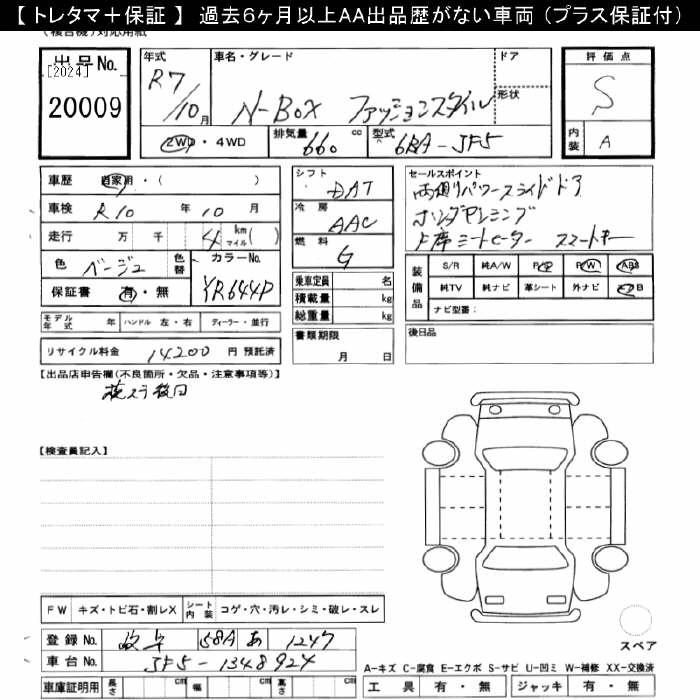 【 トレタマ＋保証 】 過去６ヶ月以上ＡＡ出品歴がない車両（プラス保証付）
(複合機)対応用紙
出品No. [2024] 20009
年式 R7/10月 車名・グレード N-BOX ファッションスタイル ドア 形状
2WD・4WD 排気量 660 cc 型式 6BA-JF5
評価点 S
内装 A
車歴 自家用・( )
車検 R10 年 10 月
走行 万 千 4 km マイル( )
色 ベージュ 色替 カラーNo. YR644P
保証書 有・無
モデル年式 年 ハンドル 左・右 ディーラー・並行
リサイクル料金 14200 円 預託済
シフト DAT
冷房 AAC
燃料 G
乗車定員 名
積載量 kg
総重量 kg
書類期限
月 日
セールスポイント
両側パワースライドドア
ホンダセンシング
F席シートヒーター スマートキー
装備品 S/R 純A/W P/S P/W ABS
純TV 純ナビ 革シート 外ナビ エアB
ナビ型番:
後日品
【出品店申告欄(不良箇所・欠品・注意事項等)】
後日
【検査員記入】
FW キズ・トビ石・割レX シート内装 コゲ・穴・汚レ・シミ・破レ・スレ
登録No. 岐阜 58A あ 1247
車台No. JF5-1348924
車庫証明用 長さ cm 幅 cm 高さ cm
スペア
A-キズ C-腐食 E-エクボ S-サビ U-凹ミ W-補修 XX-交換済
工具 有・無 ジャッキ 有・無